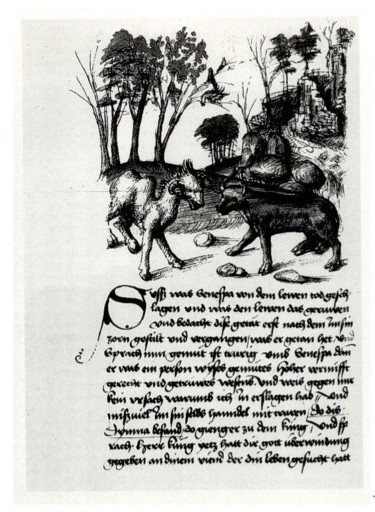 S Uss was Senespa von dem lewen tod gesch
lagen und was den lewen das geruwen
und bedacht dise getat erst nach dem im sin
zorn gestilt und vergangen was er getan het und
sprach min gemut ist trurig umb Senespa dan
er was ein person wyses gemutes hoher vernufft
gerecht und getruwes wesens und weis gegen mir
kein ursach warumb ich in erslagen hab und
missviel im sin selbs hanndel mit truren Do dis
Dymna befand do gienge er zu dem kúng und sp
rach herr kúng yetz hatt dir gott uberwindung
gegeben an dinem viend der din leben gesucht hatt